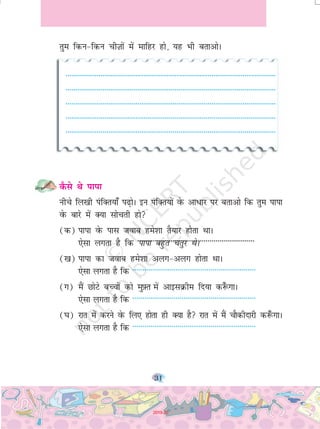 तुम किन-किन चीज़ों में माहिर हो, यह भी बताओ।
कैसे थे पापा
नीचे लिखी पंक्तियाँ पढ़ो। इन पंक्तियों के आधार पर बताओ कि तुम पापा
के बारे में क्या सोचती हो?
(क) पापा के पास जवाब हमेशा तैयार होता था।
ऐसा लगता है कि पापा बहुत चतुर थे।
(ख) पापा का जवाब हमेशा अलग-अलग होता था।
ऐसा लगता है कि
(ग) मैं छोटे बच्चों को मुफ़्त में आइसक्रीम दिया करूँगा।
ऐसा लगता है कि
(घ) रात में करने के लिए होता ही क्या है? रात में मैं चौकीदारी करूँगा।
ऐसा लगता है कि
© NCERT
not to be republished
31
2019-20